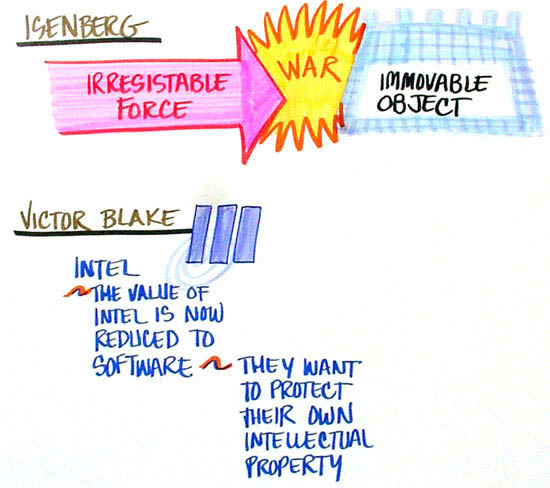 ISENBERG
IRRESISTABLE
FORCE
WAR
IMMOVABLE
OBJECT
VICTOR BLAKE
INTEL
~ THE VALUE OF
INTEL IS NOW
REDUCED TO
SOFTWARE ~ THEY WANT
TO PROTECT
THEIR OWN
INTELLECTUAL
PROPERTY